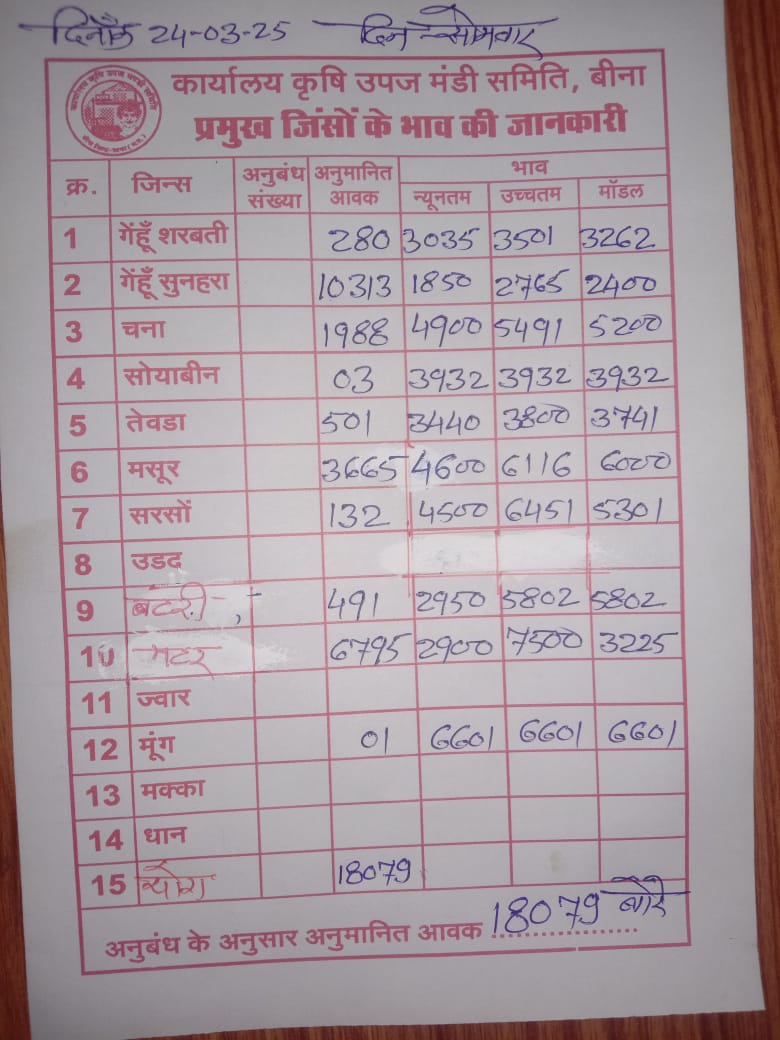 दिनाँक 24-03-25 दिन - सोमवार
कार्यालय कृषि उपज मंडी समिति, बीना
प्रमुख जिंसों के भाव की जानकारी
क्र. जिन्स अनुबंध संख्या अनुमानित आवक भाव
न्यूनतम उच्चतम मॉडल
1 गेंहूँ शरबती 280 3035 3501 3262
2 गेंहूँ सुनहरा 10313 1850 2765 2400
3 चना 1988 4900 5491 5200
4 सोयाबीन 03 3932 3932 3932
5 तेवडा 501 3440 3800 3741
6 मसूर 3665 4600 6116 6000
7 सरसों 132 4500 6451 5301
8 उडद
9 बटरी 491 2950 5802 5802
10 मटर 6795 2900 7500 3225
11 ज्वार
12 मूंग 01 6601 6601 6601
13 मक्का
14 धान
15 18079
अनुबंध के अनुसार अनुमानित आवक 18079 बोरे